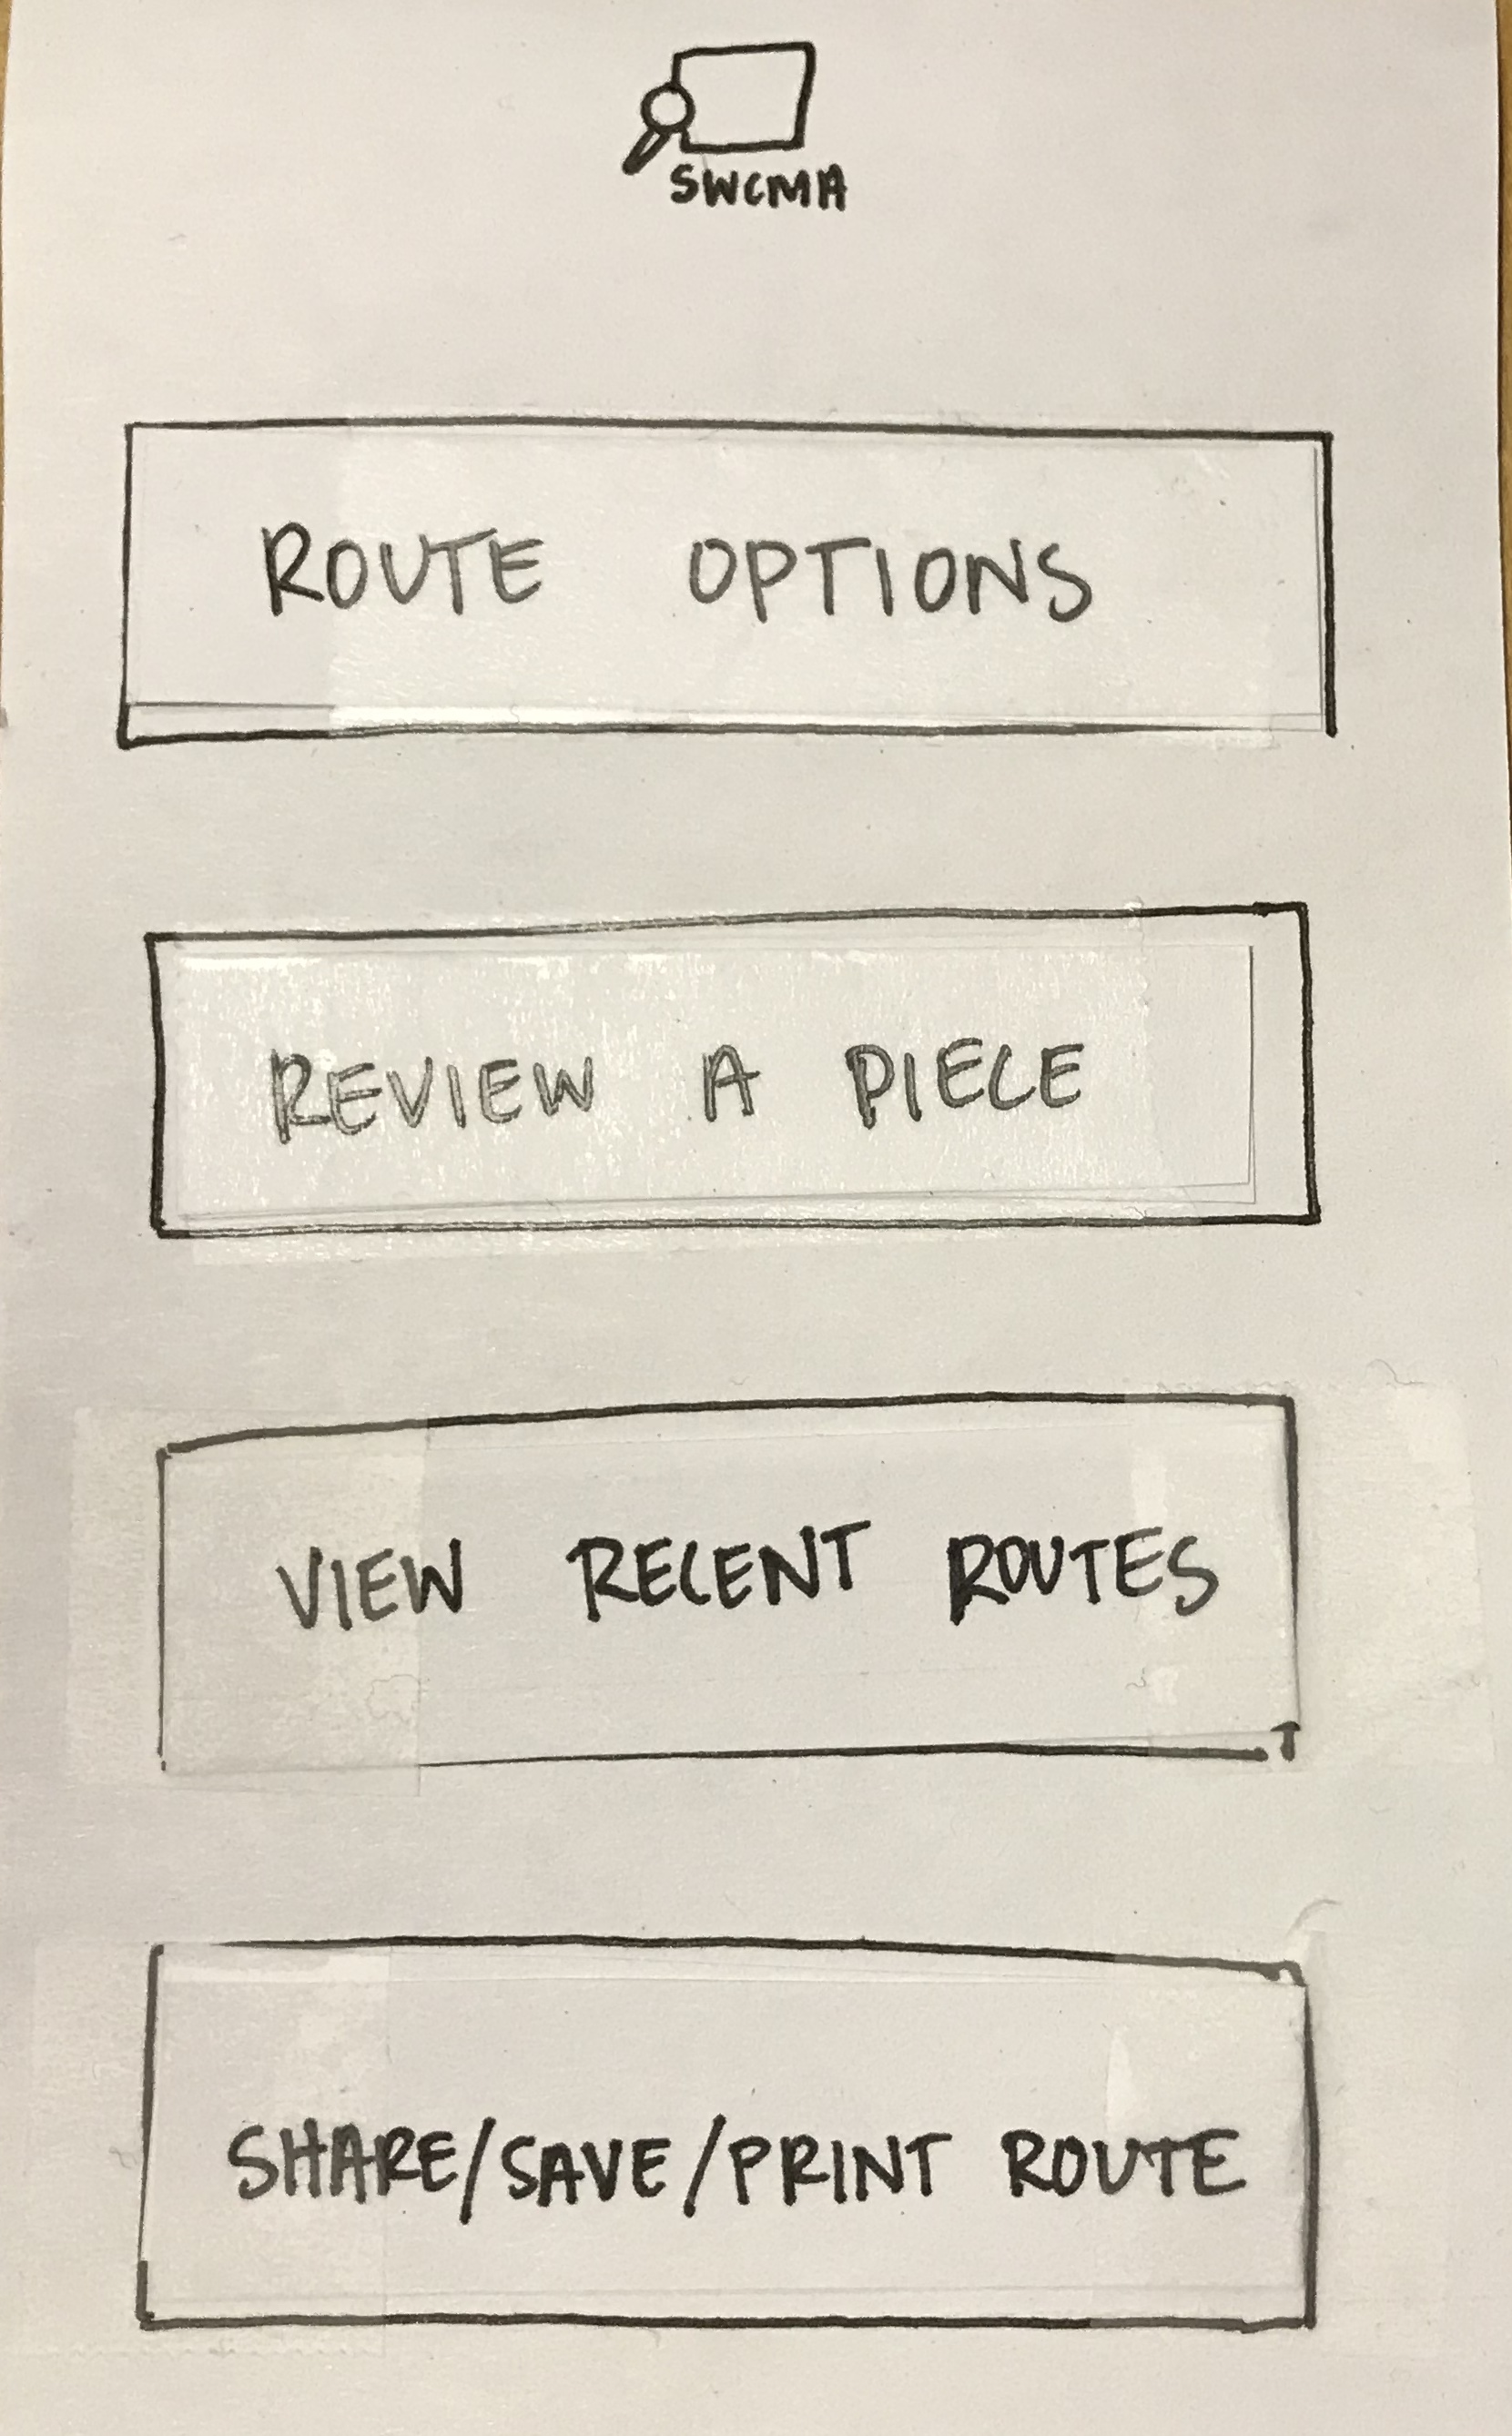 SWCMA
ROUTE OPTIONS
REVIEW A PIECE
VIEW RECENT ROUTES
SHARE/SAVE/PRINT ROUTE